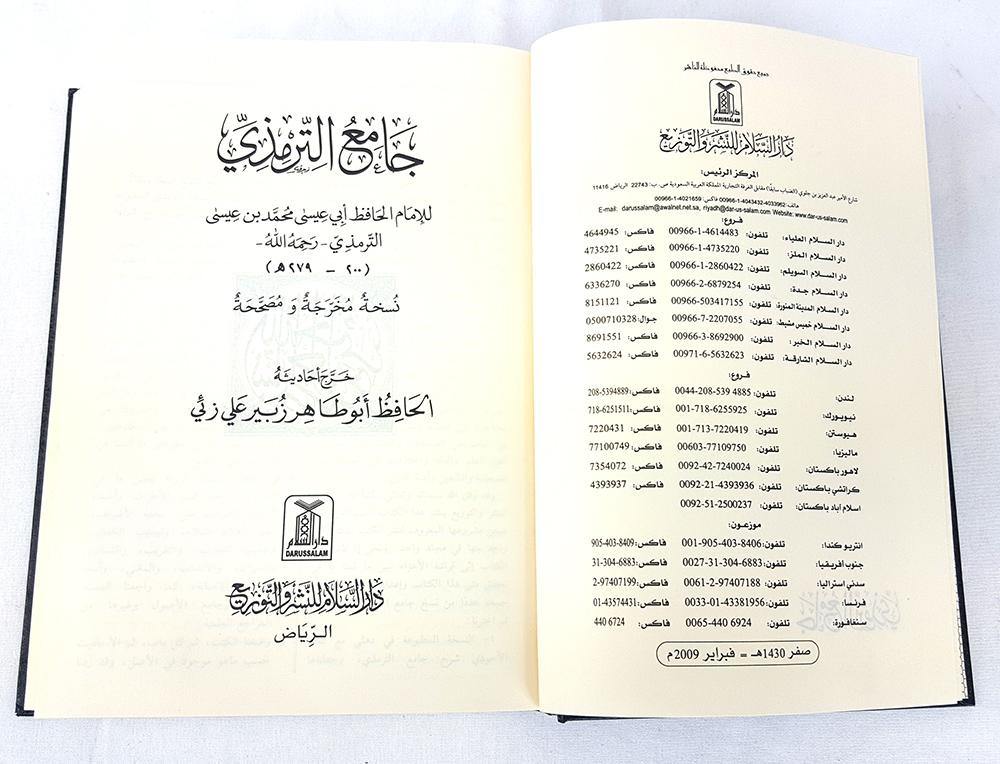 جَامِعُ التِّرْمِذِيِّ
للإمَام الحَافِظ أبي عِيسىٰ مُحمَّد بن عِيسىٰ
الترمذيّ - رَحِمَهُ اللهُ -
(٢٠٠ - ٢٧٩ هـ)
نُسخَةٌ مُخَرَّجَةٌ وَ مُصَحَّحَةٌ
خَرَّجَ أحَاديثَهُ
الحَافِظُ أبُو طَاهِر زُبَير عَلي زئي
دار السلام
DARUSSALAM
دَارُالسَّلَامِ لِلنَّشْرِ وَالتَّوْزِيعِ
الرِّيَاض
جميع حقوق الطبع محفوظة للناشر
دار السلام
DARUSSALAM
دَارُالسَّلَامِ لِلنَّشْرِ وَالتَّوْزِيعِ
المركز الرئيس:
شارع الأمير عبد العزيز بن جلوي (الضباب سابقًا) مقابل الغرفة التجارية المملكة العربية السعودية ص. ب: 22743 الرياض 11416
هاتف: 4033962-4043432-1-00966 فاكس: 4021659-1-00966
E-mail: darussalam@awalnet.net.sa, riyadh@dar-us-salam.com Website: www.dar-us-salam.com
فروع:
دار السلام العلياء: تلفون: 00966-1-4614483 فاكس: 4644945
دار السلام الملز: تلفون: 00966-1-4735220 فاكس: 4735221
دار السلام السويلم: تلفون: 00966-1-2860422 فاكس: 2860422
دار السلام جدة: تلفون: 00966-2-6879254 فاكس: 6336270
دار السلام المدينة المنورة: تلفون: 00966-503417155 فاكس: 8151121
دار السلام خميس مشيط: تلفون: 00966-7-2207055 جوال: 0500710328
دار السلام الخبر: تلفون: 00966-3-8692900 فاكس: 8691551
دار السلام الشارقة: تلفون: 00971-6-5632623 فاكس: 5632624
فروع:
لندن: تلفون: 0044-208-539 4885 فاكس: 208-5394889
نيويورك: تلفون: 001-718-6255925 فاكس: 718-6251511
هيوستن: تلفون: 001-713-7220419 فاكس: 7220431
ماليزيا: تلفون: 00603-77109750 فاكس: 77100749
لاهور باكستان: تلفون: 0092-42-7240024 فاكس: 7354072
كراتشي باكستان: تلفون: 0092-21-4393936 فاكس: 4393937
اسلام آباد باكستان: تلفون: 0092-51-2500237
موزعون:
انتريو كندا: تلفون: 001-905-403-8406 فاكس: 905-403-8409
جنوب افريقيا: تلفون: 0027-31-304-6883 فاكس: 31-304-6883
سدني استراليا: تلفون: 0061-2-97407188 فاكس: 2-97407199
فرنسا: تلفون: 0033-01-43381956 فاكس: 01-43574431
سنغافورة: تلفون: 0065-440 6924 فاكس: 440 6924
صفر 1430هـ = فبراير 2009م